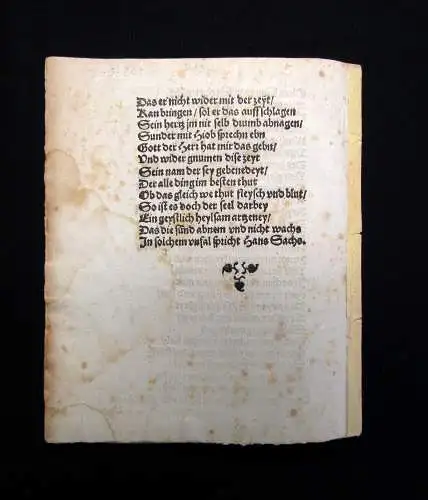 Das er nicht wider mit der zeyt/
Kan bringen / sol er das auffschlagen
Sein hertz jm nit selb drumb abnagen/
Sunder mit Hiob sprechn ebn
Gott der Herr hat mir das gebn/
Und wider gnumen dise zeyt
Sein nam der sey gebenedeyt/
Der alle ding im besten thut
Ob das gleich we thut fleysch und blut/
So ist es doch der seel darbey
Ein geystlich heylsam artzeney/
Das die sünd abnem und nicht wachs
In solchem unfal spricht Hans Sachs.